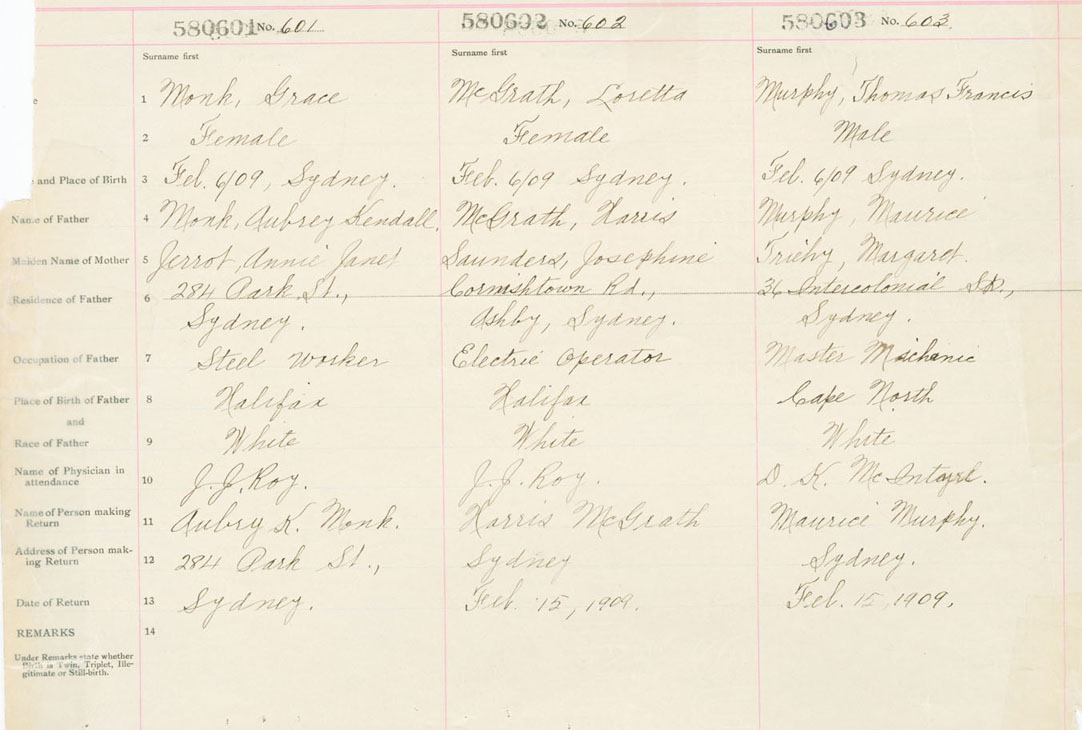 580601 No. 601 580602 No. 602 580603 No. 603
Surname first Surname first Surname first
1 Monk, Grace McGrath, Loretta Murphy, Thomas Francis
2 Female Female Male
and Place of Birth 3 Feb. 6/09, Sydney. Feb. 6/09 Sydney. Feb. 6/09 Sydney.
Name of Father 4 Monk, Aubrey Kendall. McGrath, Harris Murphy, Maurice
Maiden Name of Mother 5 Jerrot, Annie Janet Saunders, Josephine Margaret.
Residence of Father 6 284 Park St., Cornishtown Rd., 36 Intercolonial St.,
Sydney. Ashby, Sydney. Sydney.
Occupation of Father 7 Steel Worker Electric Operator Master Mechanic
Place of Birth of Father 8 Halifax Halifax Cape North
and
Race of Father 9 White White White
Name of Physician in
attendance 10 J. J. Roy. J. J. Roy. D. K. McIntyre.
Name of Person making
Return 11 Aubry K. Monk. Harris McGrath Maurice Murphy.
Address of Person mak-
ing Return 12 284 Park St., Sydney Sydney.
Date of Return 13 Sydney. Feb. 15, 1909. Feb. 15, 1909.
REMARKS 14
Under Remarks state whether
Birth is Twin, Triplet, Ille-
gitimate or Still-birth.